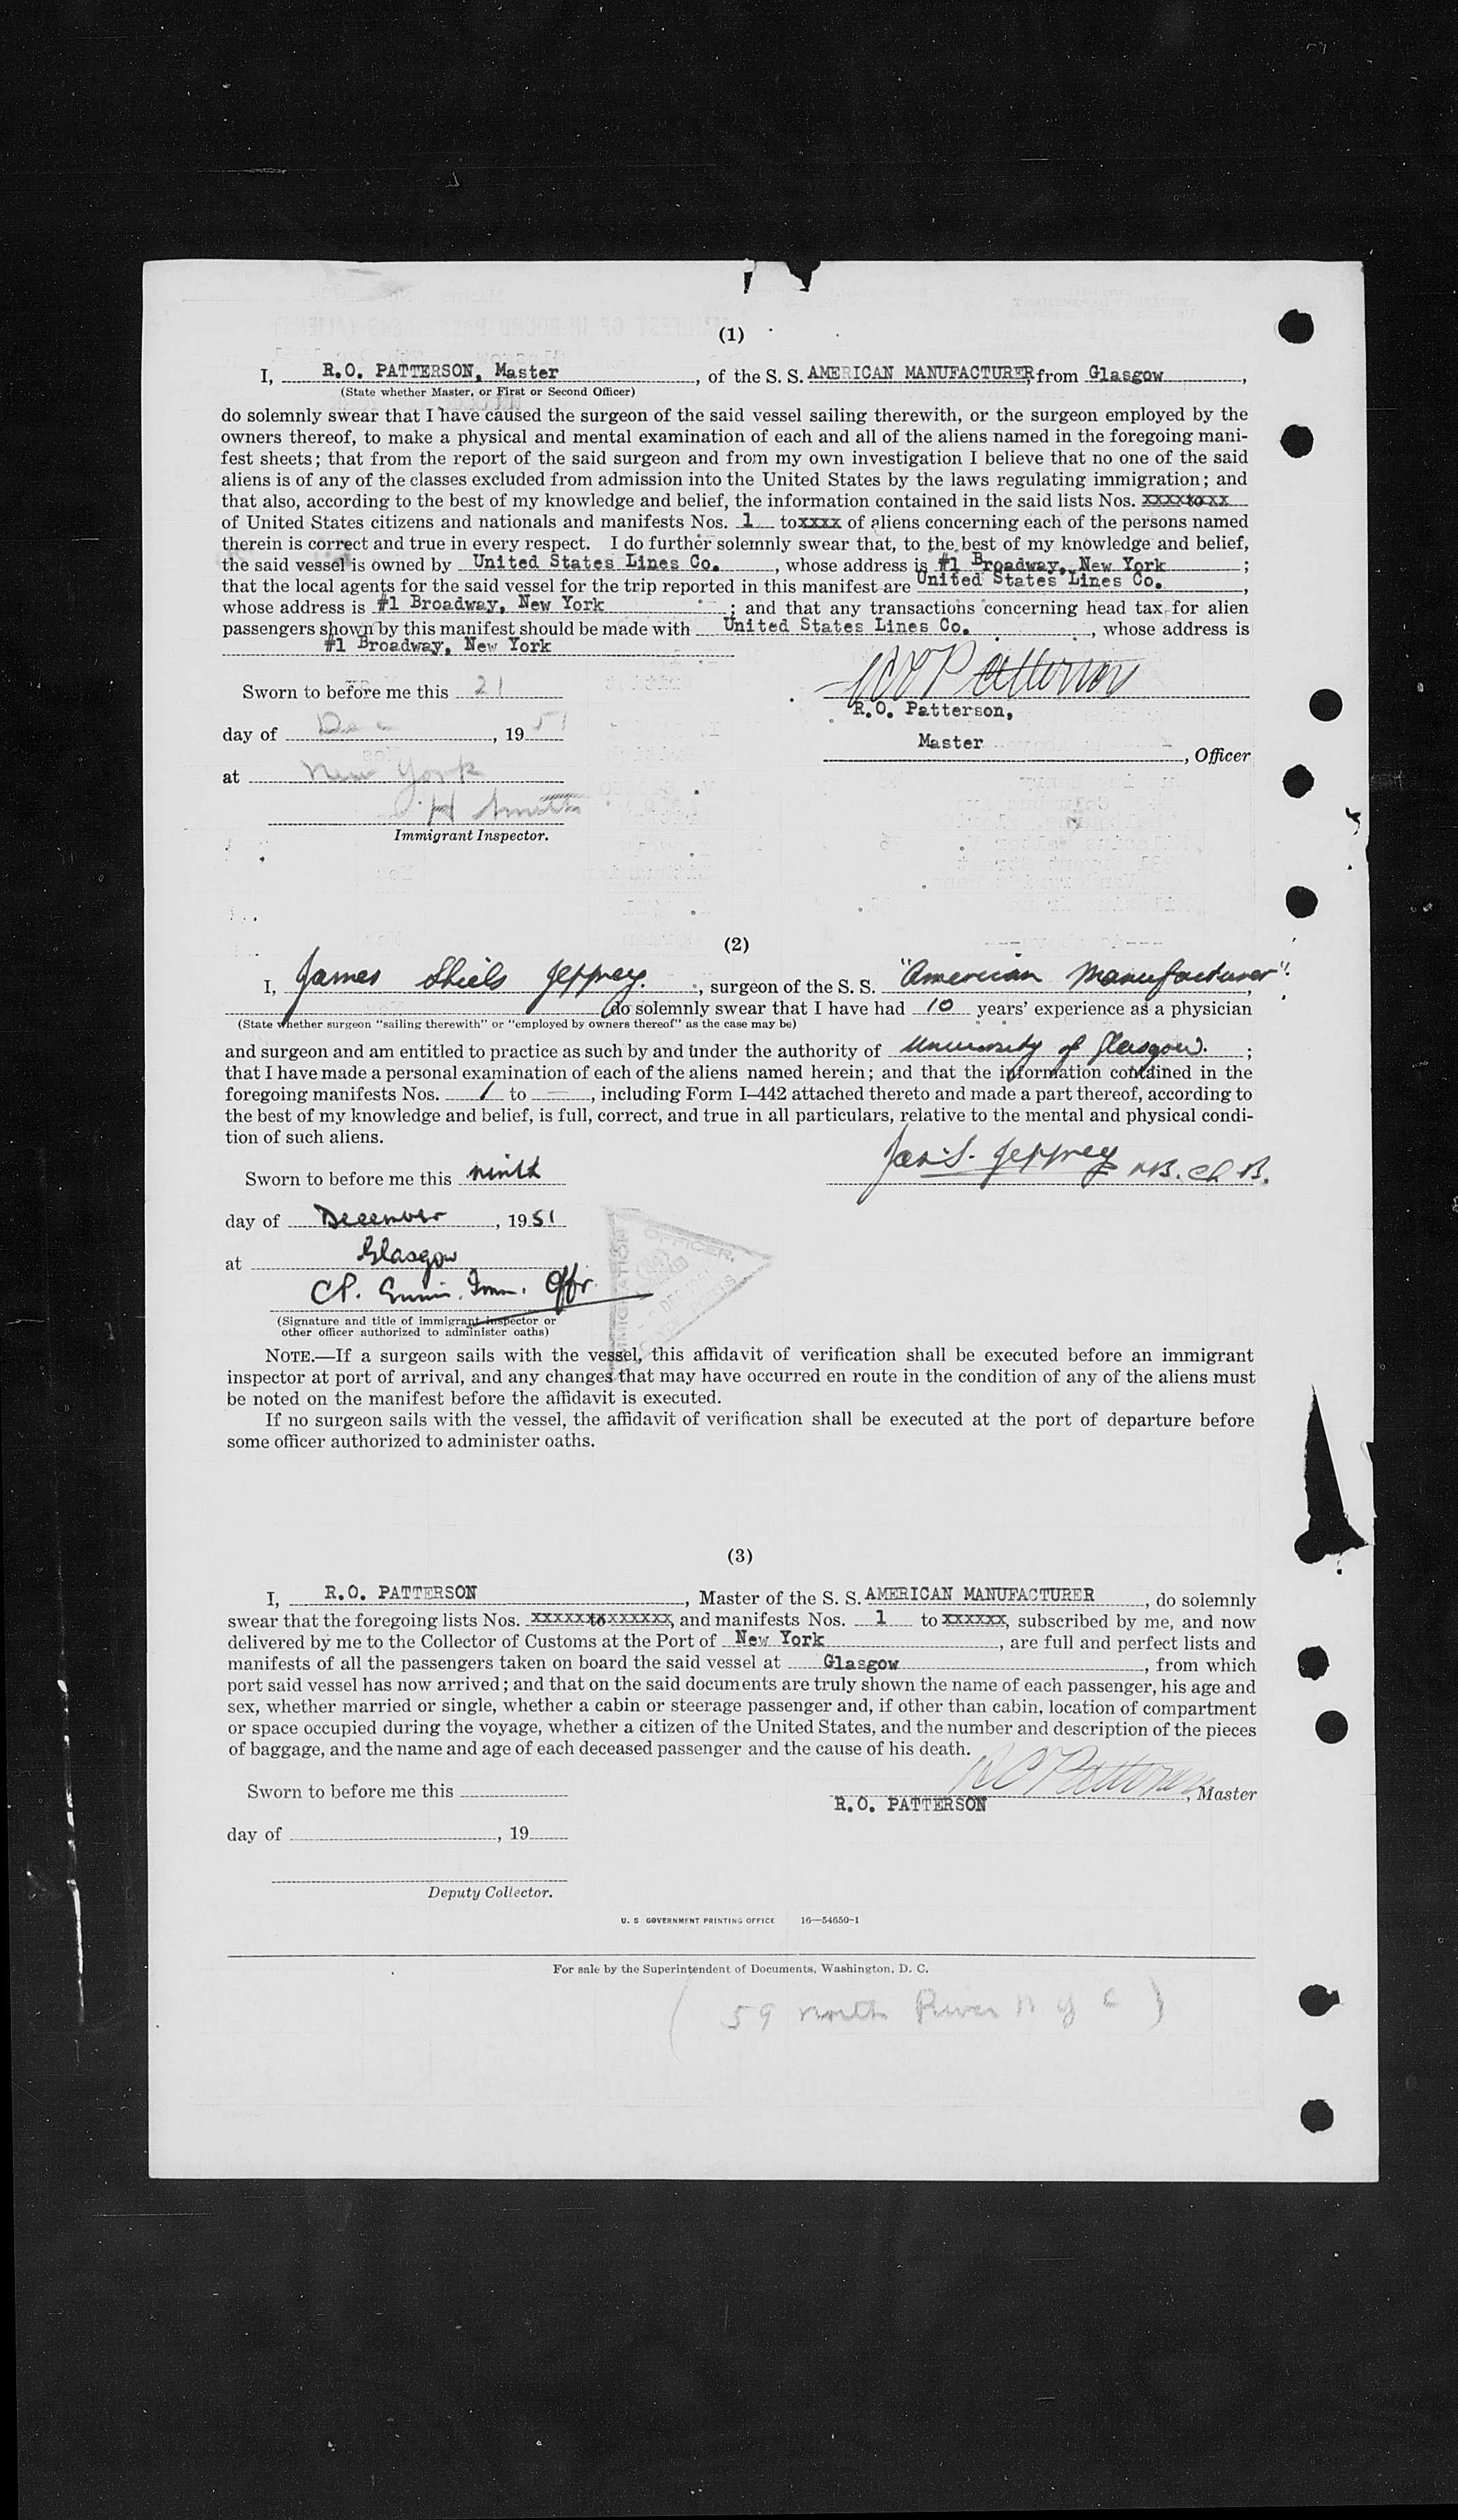 (1)
I, R.O. PATTERSON, Master, of the S. S. AMERICAN MANUFACTURER, from Glasgow,
(State whether Master, or First or Second Officer)
do solemnly swear that I have caused the surgeon of the said vessel sailing therewith, or the surgeon employed by the
owners thereof, to make a physical and mental examination of each and all of the aliens named in the foregoing mani-
fest sheets; that from the report of the said surgeon and from my own investigation I believe that no one of the said
aliens is of any of the classes excluded from admission into the United States by the laws regulating immigration; and
that also, according to the best of my knowledge and belief, the information contained in the said lists Nos. xxxxtoxxx
of United States citizens and nationals and manifests Nos. 1 to xxxx of aliens concerning each of the persons named
therein is correct and true in every respect. I do further solemnly swear that, to the best of my knowledge and belief,
the said vessel is owned by United States Lines Co., whose address is #1 Broadway, New York;
that the local agents for the said vessel for the trip reported in this manifest are United States Lines Co.,
whose address is #1 Broadway, New York; and that any transactions concerning head tax for alien
passengers shown by this manifest should be made with United States Lines Co., whose address is
#1 Broadway, New York
R O Patterson
Sworn to before me this 21
R.O. Patterson,
day of Dec, 19 51
Master, Officer
at New York
H Smith
Immigrant Inspector.
(2)
I, James Shiels Jeffrey., surgeon of the S. S. "American Manufacturer".
do solemnly swear that I have had 10 years' experience as a physician
(State whether surgeon "sailing therewith" or "employed by owners thereof" as the case may be)
and surgeon and am entitled to practice as such by and under the authority of University of Glasgow.;
that I have made a personal examination of each of the aliens named herein; and that the information contained in the
foregoing manifests Nos. 1 to —, including Form I–442 attached thereto and made a part thereof, according to
the best of my knowledge and belief, is full, correct, and true in all particulars, relative to the mental and physical condi-
tion of such aliens.
Jas. S. Jeffrey MB. Ch B.
Sworn to before me this ninth
day of December, 1951
at Glasgow
IMMIGRATION OFFICER
DEC 1951
(Signature and title of immigrant inspector or
other officer authorized to administer oaths)
NOTE.—If a surgeon sails with the vessel, this affidavit of verification shall be executed before an immigrant
inspector at port of arrival, and any changes that may have occurred en route in the condition of any of the aliens must
be noted on the manifest before the affidavit is executed.
If no surgeon sails with the vessel, the affidavit of verification shall be executed at the port of departure before
some officer authorized to administer oaths.
(3)
I, R.O. PATTERSON, Master of the S. S. AMERICAN MANUFACTURER, do solemnly
swear that the foregoing lists Nos. xxxxxxtoxxxxxx, and manifests Nos. 1 to xxxxxx, subscribed by me, and now
delivered by me to the Collector of Customs at the Port of New York, are full and perfect lists and
manifests of all the passengers taken on board the said vessel at Glasgow, from which
port said vessel has now arrived; and that on the said documents are truly shown the name of each passenger, his age and
sex, whether married or single, whether a cabin or steerage passenger and, if other than cabin, location of compartment
or space occupied during the voyage, whether a citizen of the United States, and the number and description of the pieces
of baggage, and the name and age of each deceased passenger and the cause of his death.
R O Patterson
Sworn to before me this
, Master
R.O. PATTERSON
day of , 19
Deputy Collector.
U. S GOVERNMENT PRINTING OFFICE 16—54650-1
For sale by the Superintendent of Documents, Washington, D. C.
( 59 North River N Y C )